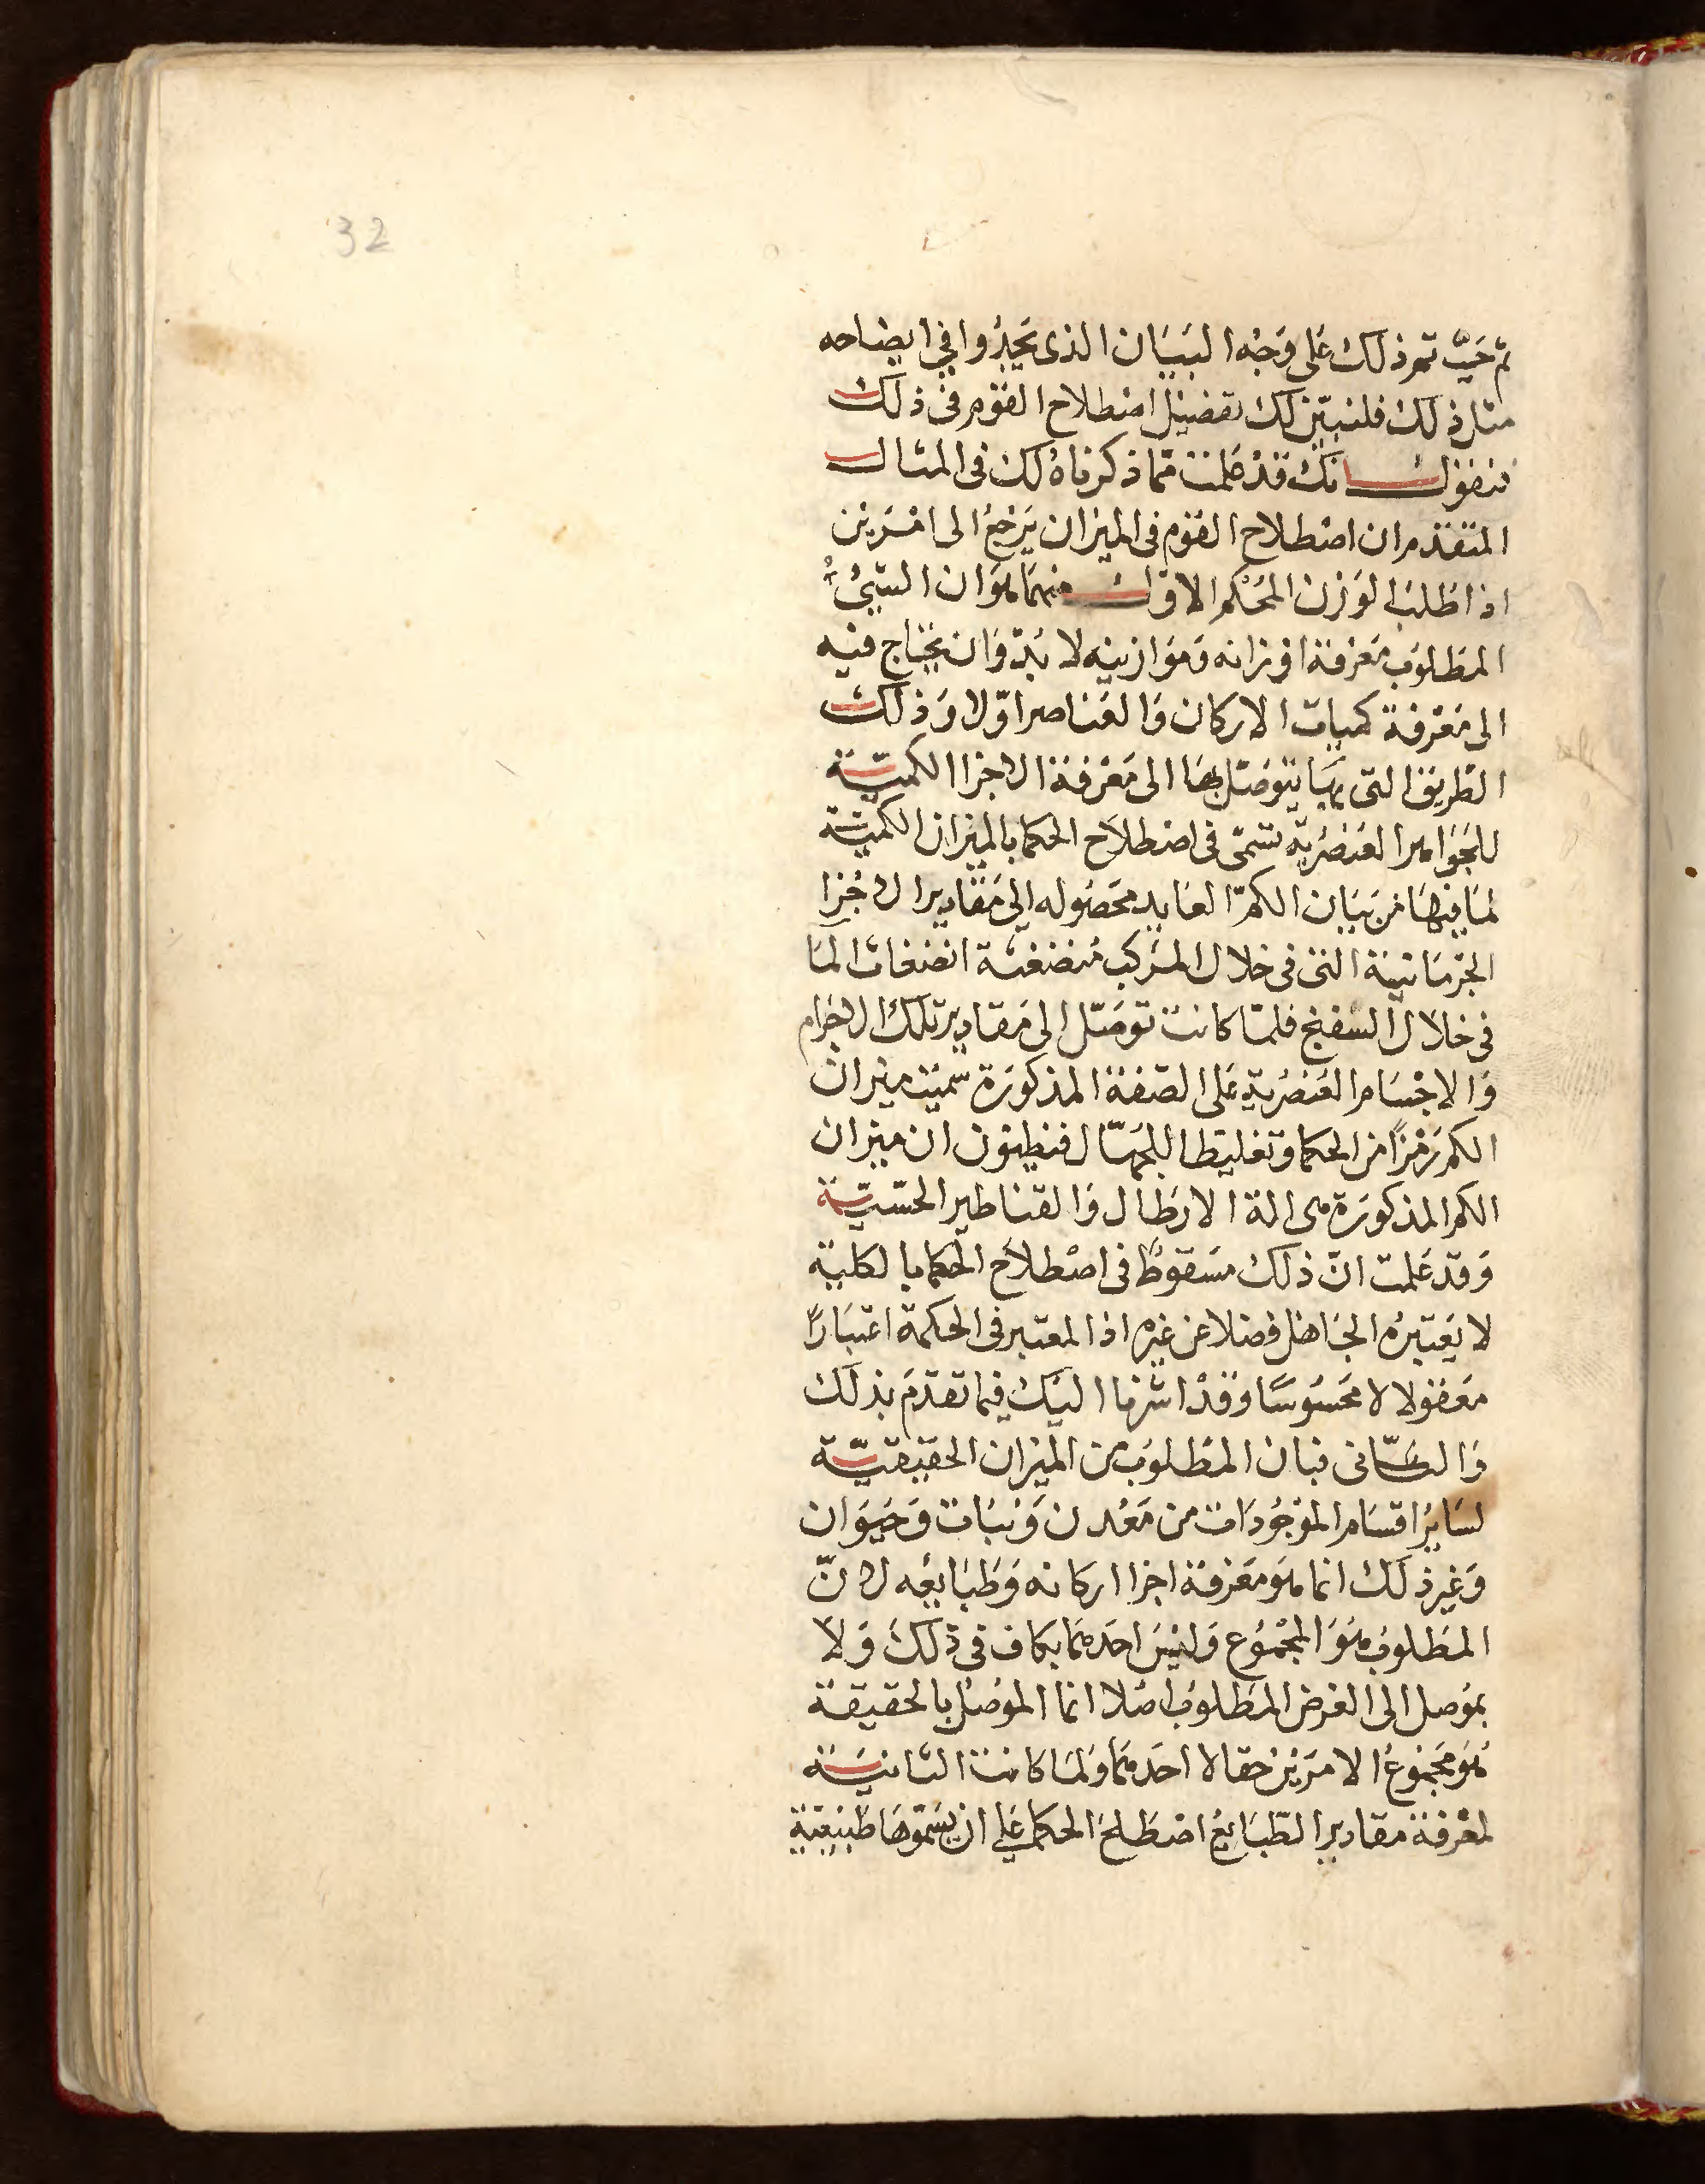 32
ثم حيث تم ذلك على وجه البيان الذى وافي ايضاحه
مثار ذلك فلنبين لك تفضيل اصطلاح القوم فى ذلك
فنقول انك قد علمت مما ذكرناه لك فى المثال
المتقدم ان اصطلاح القوم فى الميزان يرجع الى امرين
اذا طلب الوزن المحكم الاول منهما هو ان الشىء
المطلوب معرفة اوزانه وموازينه لا بد وان يحتاج فيه
الى معرفة كميات الاركان والعناصر اولا وذلك
الطريق التى بها يتوصل بها الى معرفة الاجزا الكمية
للجواهر العنصرية تسمى فى اصطلاح الحكما بالميزان الكمية
لما فيها من بيان الكم العايد محصوله الى مقادير الاجزا
الجرمانية التى فى خلال المركب الما
فى خلال السفنج فلما كانت توصل الى مقادير تلك الاجرام
والاجسام العنصرية على الصفة المذكورة سميت ميزان
الكم رمزا من الحكما وتغليطا للجهال فيظنون ان ميزان
الكم المذكورة هى الة الارطال والقناطير الحسية
وقد علمت ان ذلك مسقوط فى اصطلاح الحكما بالكلية
لا يعتبره الجاهل فضلا عن غيره اذ المعتبر فى الحكمة اعتبارا
معقولا لا محسوسا وقد اشرنا اليك فيما تقدم بذلك
والثانى فبان المطلوب من الميزان الحقيقية
لساير اقسام الموجودات من معدن ونبات وحيوان
وغير ذلك انما هو معرفة اجزا اركانه وطبايعه لان
المطلوب هو المجموع وليس احدهما بكاف فى ذلك ولا
بموصل الى الغرض المطلوب اصلا انما الموصل بالحقيقة
هو مجموع الامرين حقا لا احدهما ولما كانت الثانية
لمعرفة مقادير الطبايع اصطلح الحكما على ان يسموها طبيعية